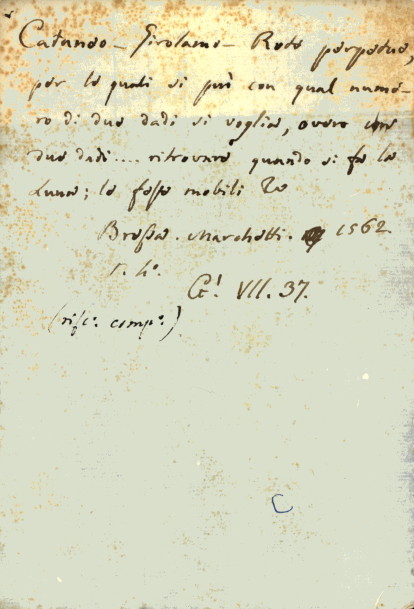 Cataneo - Girolamo - Rote perpetue,
per le quali si può con qual nume-
ro di due dadi si voglia, overo con
due dadi.... ritrovare quando si fa la
Luna; le feste mobili &c
Brescia. Marchetti. 1562
r. 4°.
G! VII. 37.
(rifo: comp:)
C